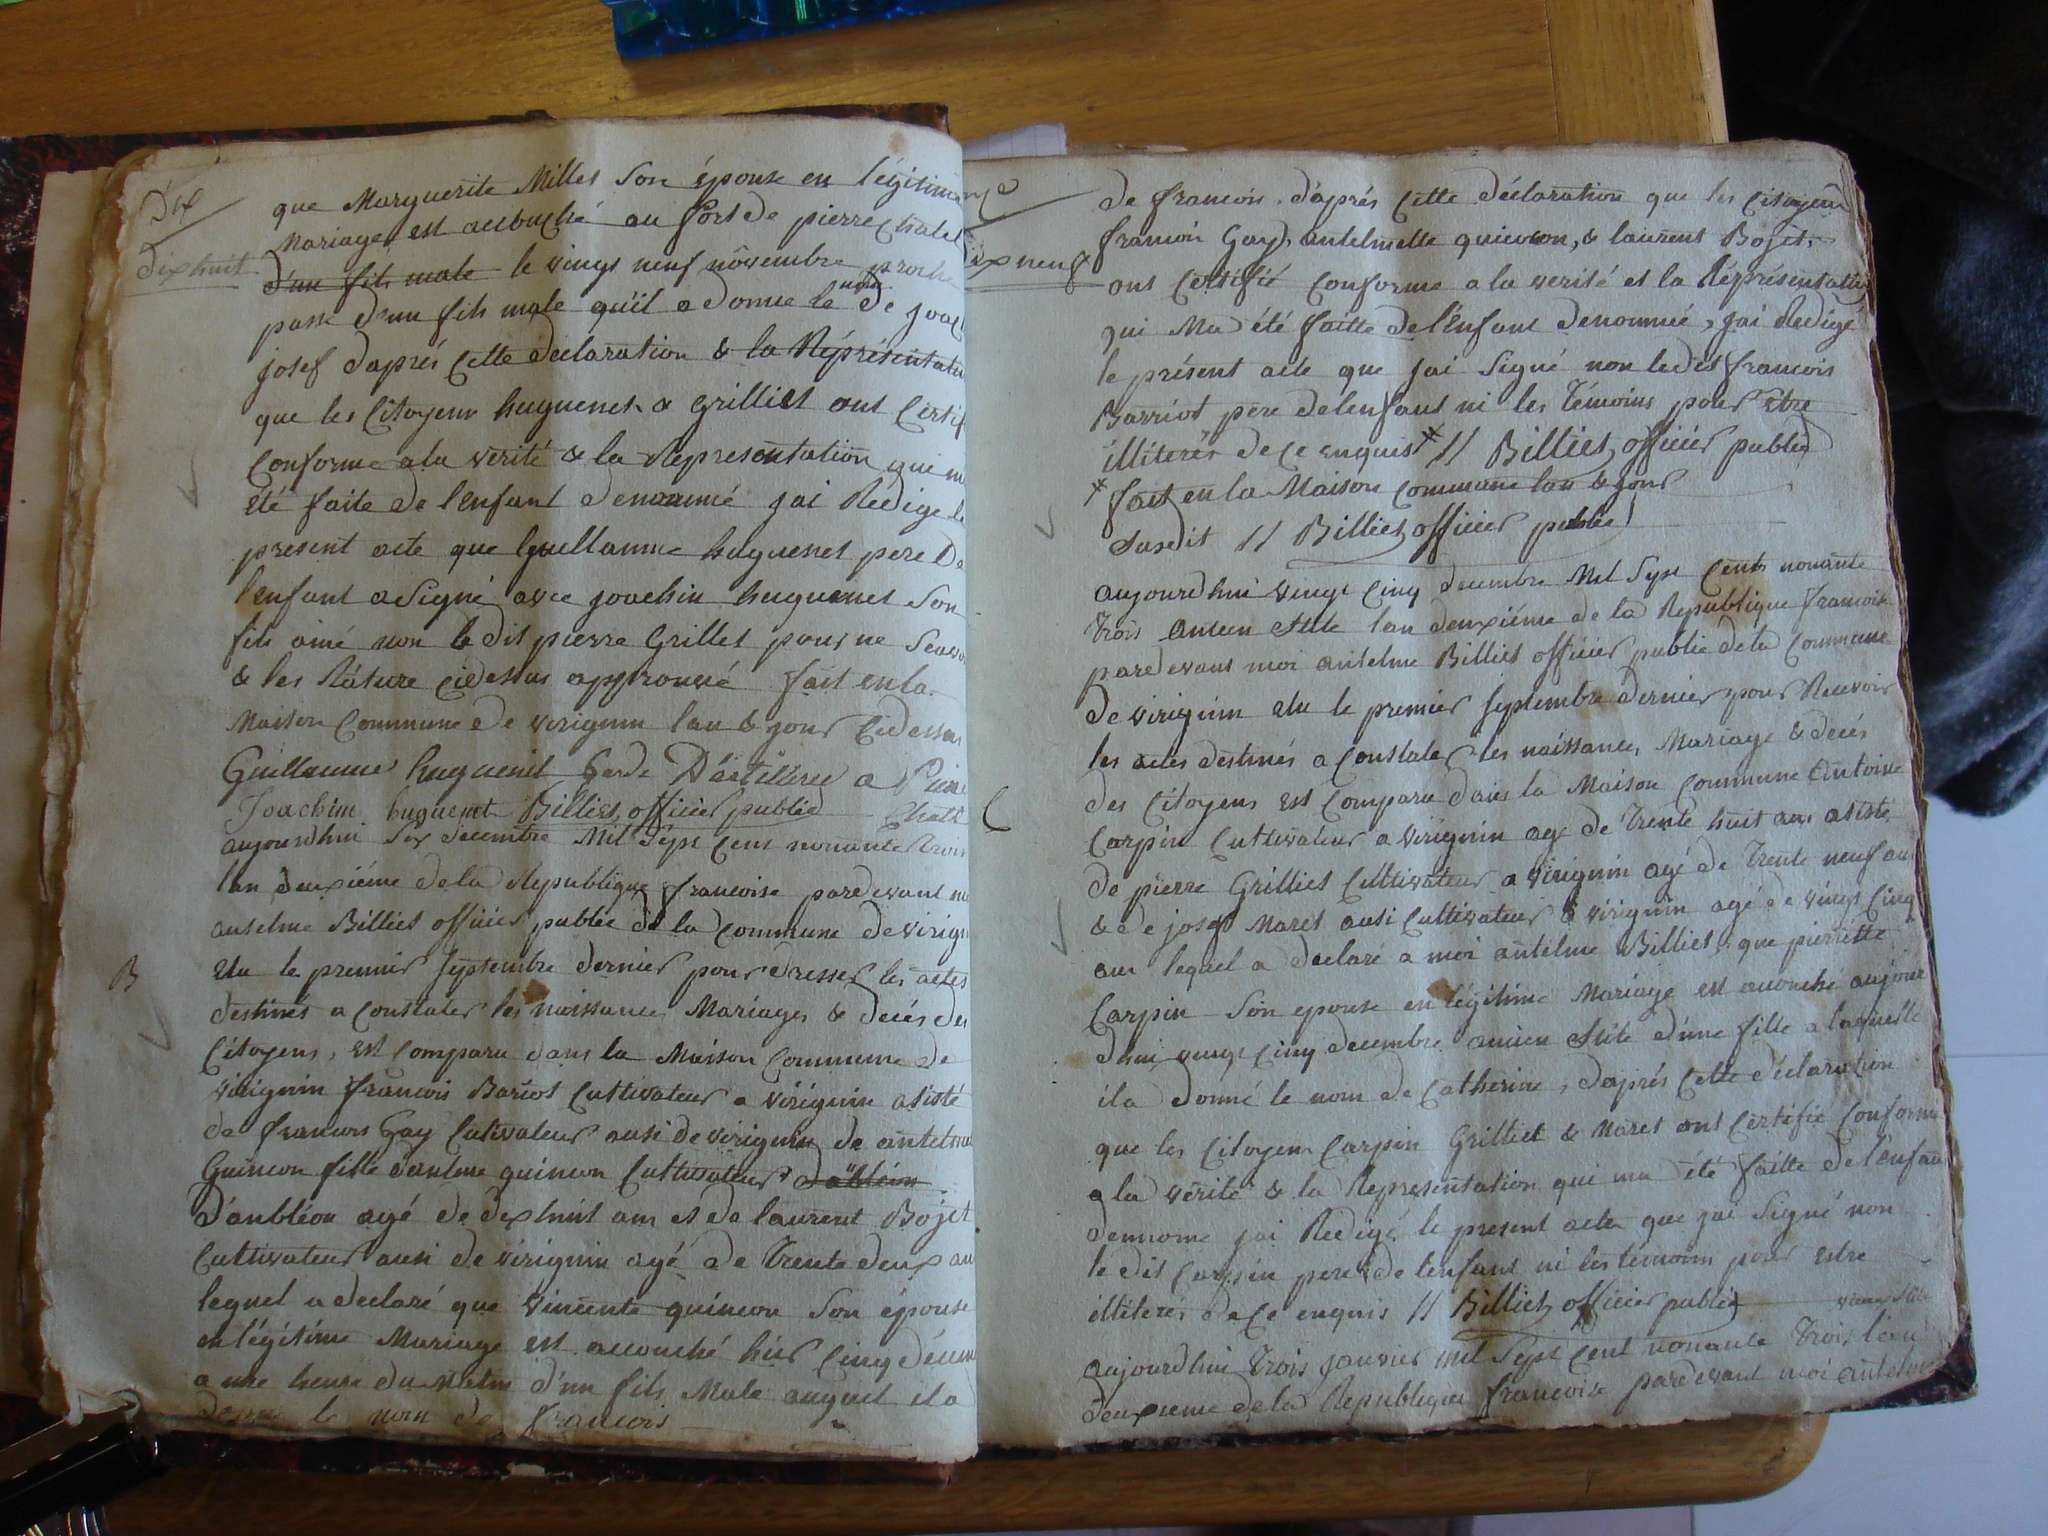 Dix
dixhuit
que Marguerite Millet Son épouse en légitime
Mariage est accouché au fort de pierre Chatel
d'un fils male le vingt neuf novembre proche
passé d'un fils male qu'il a donné le nom de joach
josef d'aprés Cette declaration & la Réprésentatio
que les Citoyens huguenet & Grilliet ont Certif
Conforme a la verité & la Representation qui m
été faite de l'enfant denommé jai Redigé le
present acte que Guillaume huguenet pere De
l'enfant a Signé avec joachin huguenet Son
fils ainé non le dit pierre Grillet pour ne Scavoi
& les Ráture cidessus approuvé fait en la
Maison Commune de virignin l'an & jour Cidessus
Guillaume huguenet Garde D'artillerie a Pierre
Joachim huguenet Billiet officier public Chatel
aujourdhui six decembre Mil Sept Cent nonante trois
l'an deuxiéme de la Republique francoise pardevant moi
anselme Billiet officier public de la Commune de virign
B
Elu le premier Septembre dernier pour dresser les actes
destinés a Constater les naissance, Mariages & decés des
Citoyens, est Comparu dans la Maison Commune de
virignin francois Bariot Cultivateur a viriginin asisté
de francois Gay Cultivateur ausi de virignin de antelme
Guincon fille d'antme quincon Cultivateur
D'anbléon agé de dixhuit ans et de laurent Bojet
Cultivateur ausi de virignin agé de Trente deux an
lequel a declaré que vincente quincon Son épouse
en légitime Mariage est accouché hier Cinq décem
a une heure du Matin d'un fils Male auquel il a
donné le nom de francois
dix neuf
de francois. d'aprés Cette déclaration que les Citoyens
francois Gay, antelmette quincon, & laurent Bojet,
ont Certifié Conforme a la verité et la Répresentation
qui Ma été faitte de l'Enfant denommé, jai Redigé
le présent acte que jai Signé non ledit francois
Barriot pere de l'enfant ni les Témoins pour Etre
illiterés de Ce enquis * // Billiet officier public
* fait en la Maison Commune l'an & jour
Susdit // Billiet officier public
aujourdhui vingt Cinq decembre Mil Sept Cents nonante
trois ancien Stile l'an deuxiéme de la Republique francoise
pardevant moi antelme Billiet officier public de la Commune
de virignin Elu le premier Septembre dernier pour Recevoir
les actes destinés a Constater les naissances, Mariage & decés
C
des Citoyens est Comparu dans la Maison Commune Antoine
Carpin Cultivateur a virignin age de Trente huit ans asisté
de pierre Grilliet Cultivateur a virignin agé de Trente neuf an
& de josept Maret ausi Cultivateur a virignin agé de vingt Cinq
ans lequel a declaré a moi antelme Billiet, que pierrette
Carpin Son epouse en légitime Mariage est accouché aujour
dhui vingt Cinq decembre ancien Stile d'une fille a laquelle
il a Donné le nom de Catherine, d'aprés Cette déclaration
que les Citoyens Carpin Grilliet & Maret ont Certifié Conforme
a la vérité & la Representation qui ma été faitte de l'enfan
denomé jai Redigé le present acte que jai Signé non
le dit Carpin pere de l'enfant ni les témoins pour Estre
illiterés de Ce enquis // Billiet officier public
vieux Stile
aujourdhui Trois Janvier mil Sept Cent nonante Trois l'an
deuxieme de la Republique francoise pardevant moi antelme